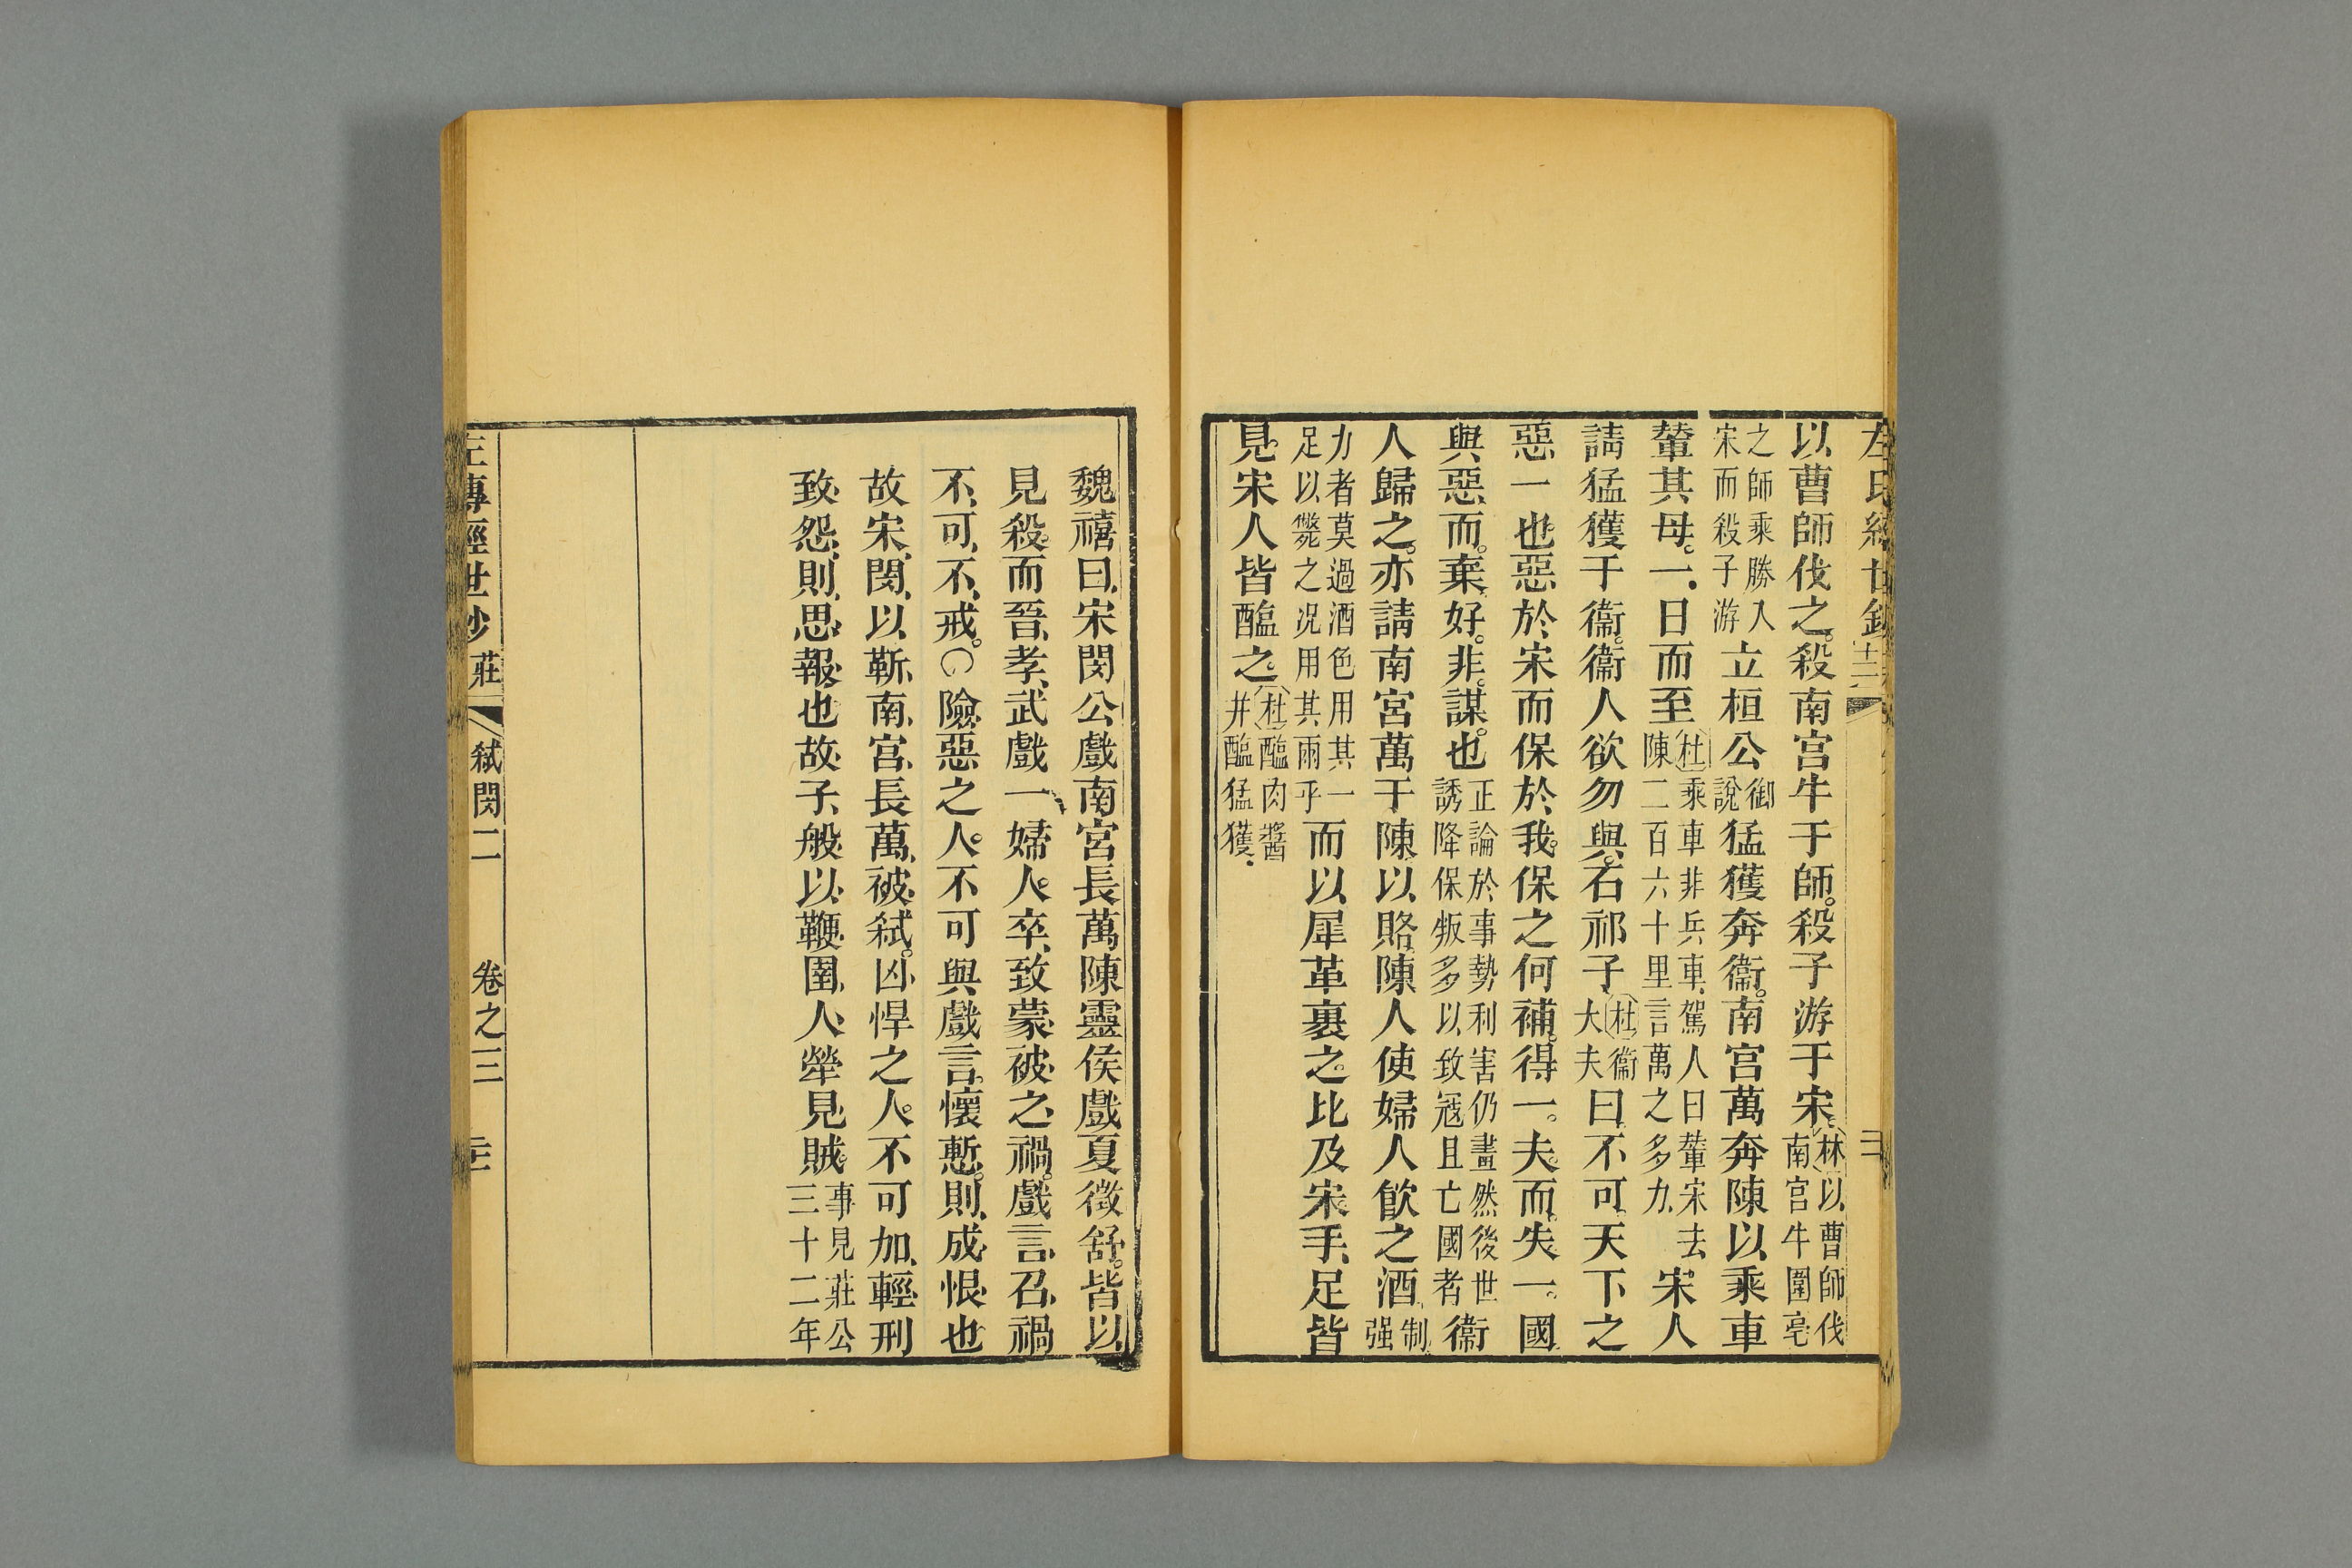 以曹師伐之。殺南宮牛于師。殺子游于宋。林以曹師伐南宮牛圍亳
之師乘勝入宋而殺子游立桓公御說猛獲奔衞。南宮萬奔陳以乘車
輦其母。一日而至杜乘車非兵車駕人曰輦宋去陳二百六十里言萬之多力宋人
請猛獲于衞。衞人欲勿與。石祁子杜衞大夫曰不可。天下之
惡一也惡於宋而保於我。保之何補。得一夫而失一國
與惡而棄好。非謀也正論於事勢利害仍畫然後世誘降保叛多以致冦且亡國者衞
人歸之。亦請南宮萬于陳以賂。陳人使婦人飮之酒制强
力者莫過酒色用其一足以斃之况用其兩乎而以犀革裹之。比及宋手足皆
見。宋人皆醢之。杜醢肉醬并醢猛獲
魏禧曰宋閔公戲南宮長萬陳靈侯戲夏徵舒。皆以
見殺。而晉孝武戲一婦人。卒致蒙被之禍。戲言召禍
不可不戒。險惡之人。不可與戲言。懷慙則成恨也
故宋閔以靳南宮長萬被弒。凶悍之人。不可加輕刑
致怨則思報也故子般以鞭圉人犖見賊。事見莊公三十二年
左傳經世鈔 莊 弒閔二 卷之三